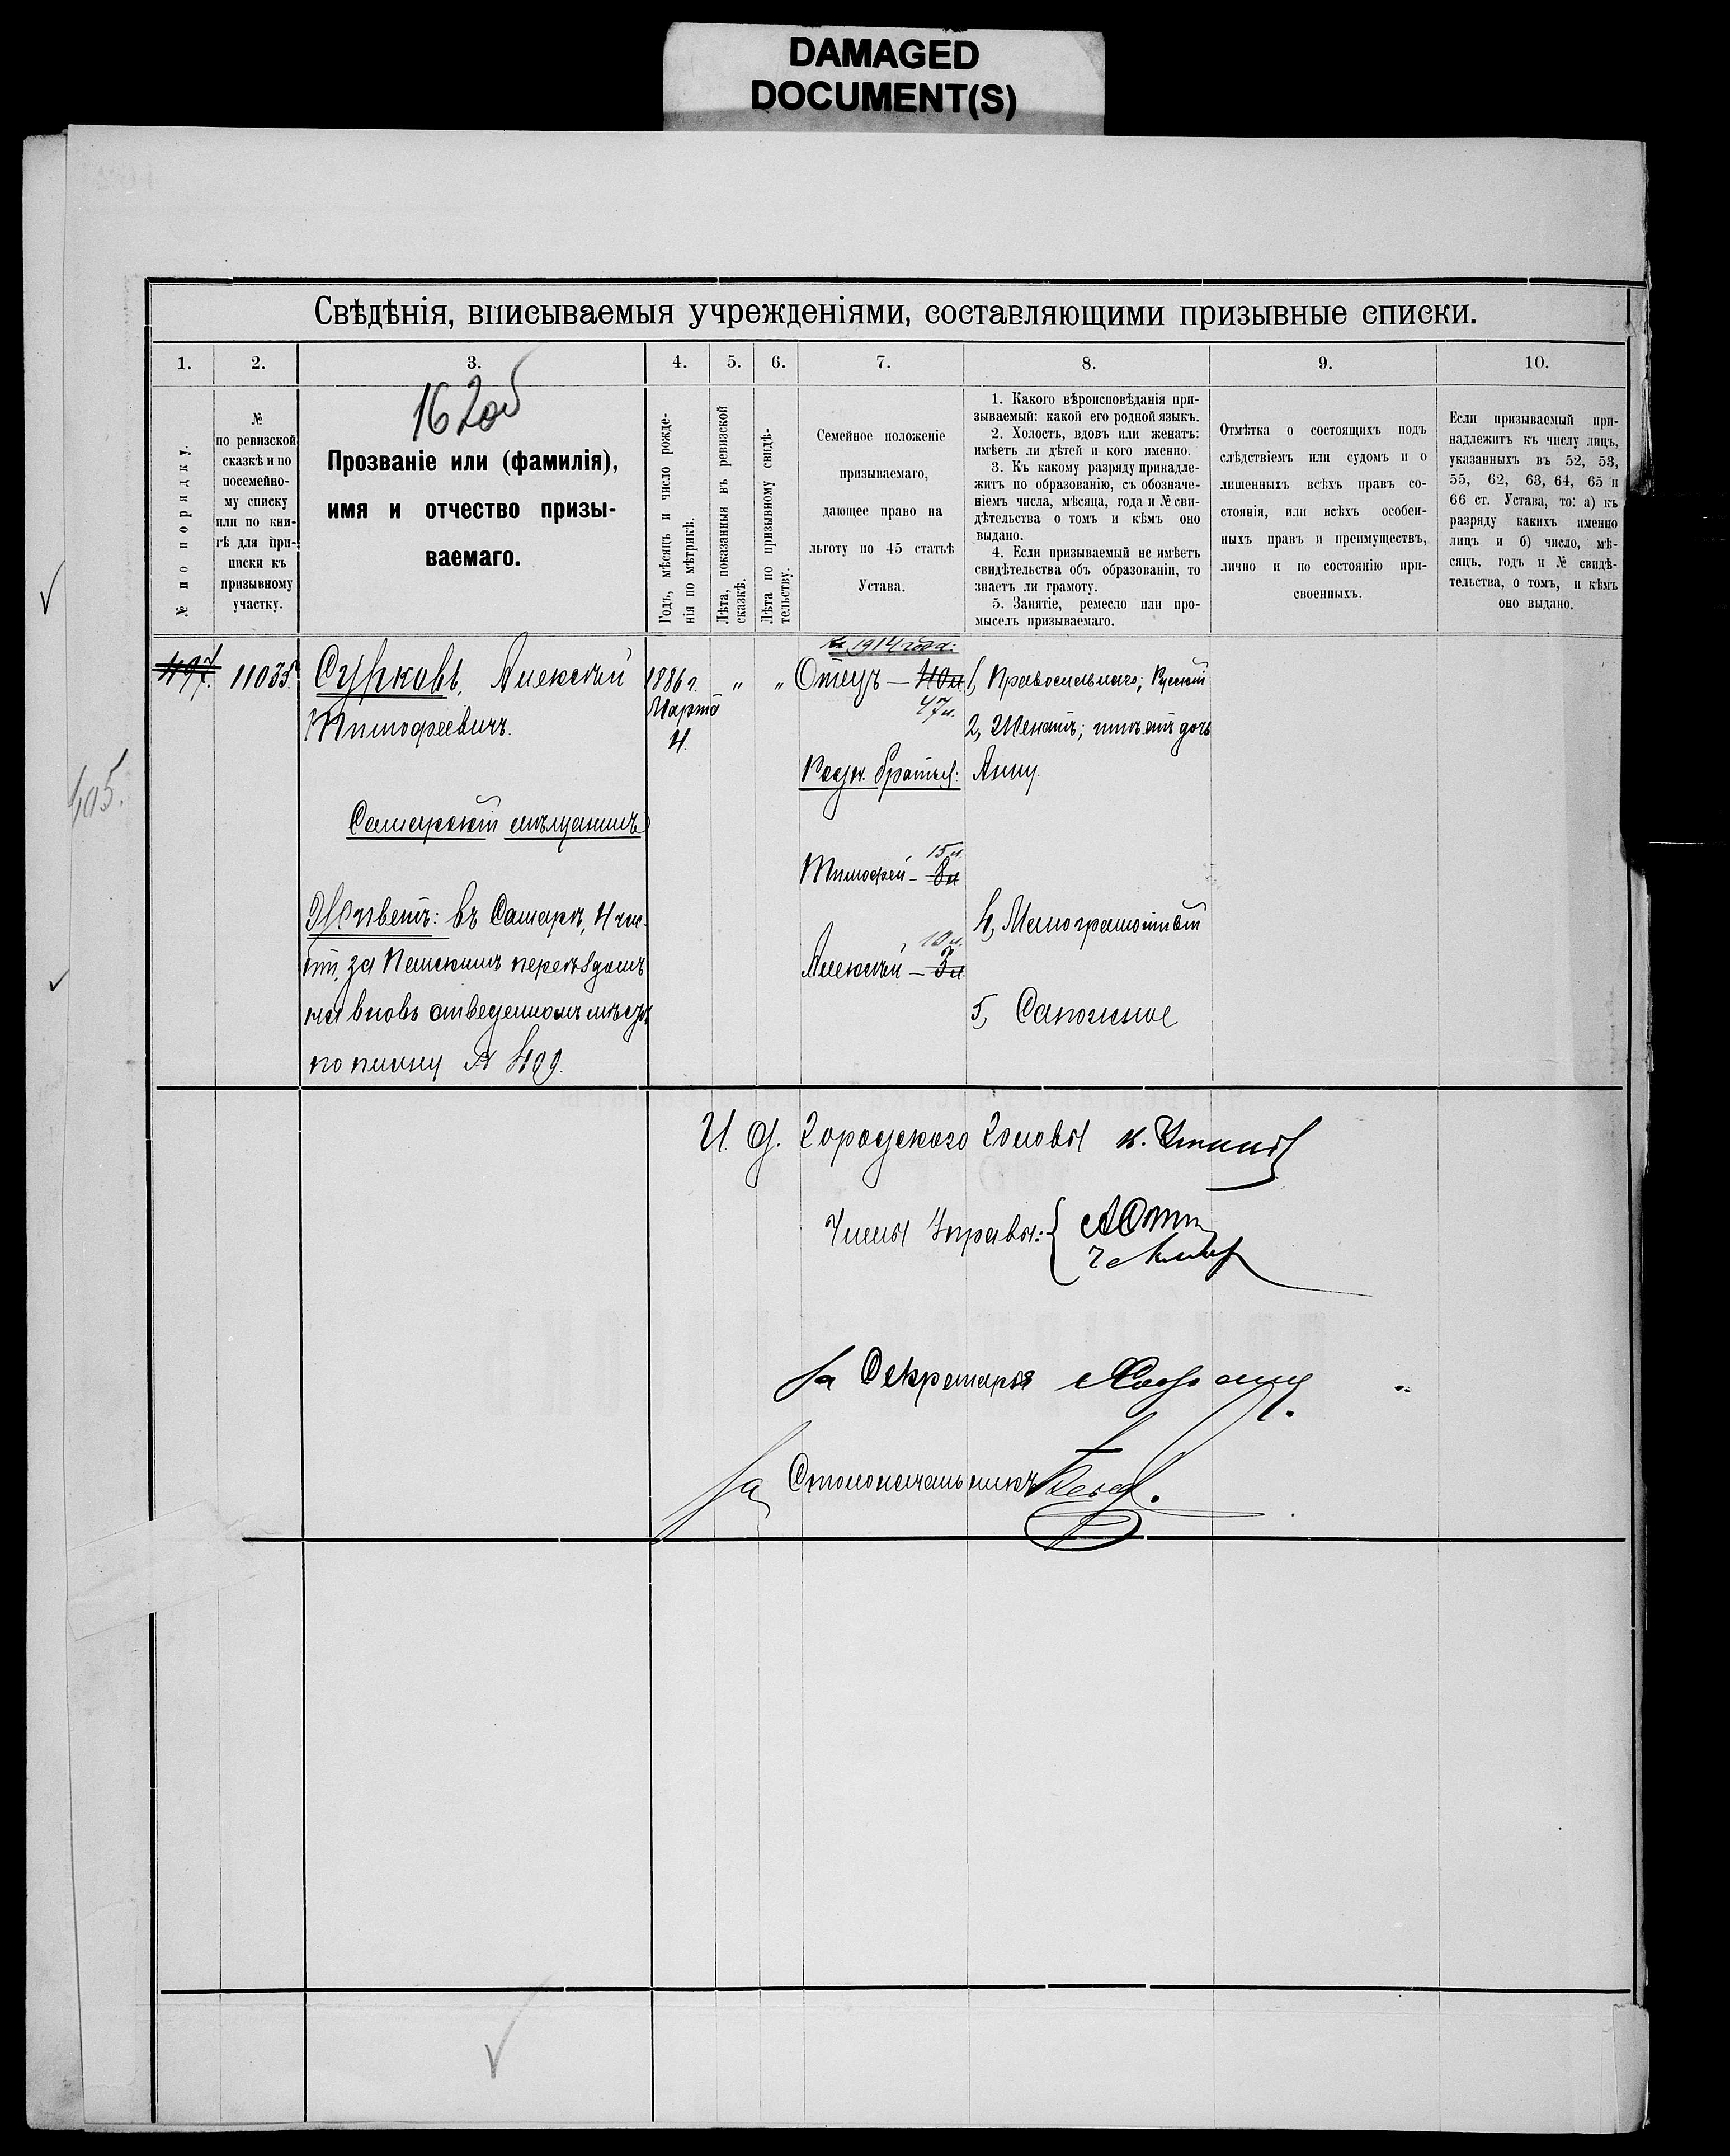 DAMAGED
DOCUMENT(S)
Свѣдѣнія, вписываемыя учрежденіями, составляющими призывные списки.
1. 2. 3. 4. 5. 6. 7. 8. 9. 10.
№ по порядку.
№
по ревизской
сказкѣ и по
посемейно-
му списку
или по кни-
гѣ для при-
писки къ
призывному
участку.
Прозваніе или (фамилія),
имя и отчество призы-
ваемаго.
Годъ, мѣсяцъ и число рожде-
нія по метрикѣ.
Лѣта, показанныя въ ревизской
сказкѣ.
Лѣта по призывному свидѣ-
тельству.
Семейное положеніе
призываемаго,
дающее право на
льготу по 45 статьѣ
Устава.
1. Какого вѣроисповѣданія при-
зываемый: какой его родной языкъ.
2. Холостъ, вдовъ или женатъ:
имѣетъ ли дѣтей и кого именно.
3. Къ какому разряду принадле-
житъ по образованію, съ обозначе-
ніемъ числа, мѣсяца, года и № сви-
дѣтельства о томъ и кѣмъ оно
выдано.
4. Если призываемый не имѣетъ
свидѣтельства объ образованіи, то
знаетъ ли грамоту.
5. Занятіе, ремесло или про-
мыселъ призываемаго.
Отмѣтка о состоящихъ подъ
слѣдствіемъ или судомъ и о
лишенныхъ всѣхъ правъ со-
стоянія, или всѣхъ особен-
ныхъ правъ и преимуществъ,
лично и по состоянію при-
своенныхъ.
Если призываемый при-
надлежитъ къ числу лицъ,
указанныхъ въ 52, 53,
55, 62, 63, 64, 65 и
66 ст. Устава, то: а) къ
разряду какихъ именно
лицъ и б) число, мѣ-
сяцъ, годъ и № свидѣ-
тельства, о томъ, и кѣмъ
оно выдано.
497. 11035.
Сурковъ, Алексѣй
Тимофеевичъ.
Самарскій мѣщанинъ
Живетъ: въ Самарѣ, 4 час-
ти, за
на вновь отведенномъ мѣстѣ
по плану № 499.
1886 г.
Марта
4.
" "
1914 года:
Отецъ — 40 л
47 л.
Родн. братья:
15 л.
Тимофей — 8 л
10 л.
Алексѣй — 3 л
1, Православнаго; Русскій
2, Женатъ; имѣетъ дочь
Анну.
4, Малограмотный
5, Сапожное
405.
И. д. Городского Головы
Члены Управы:
За Секретаря
За Столоначальникъ